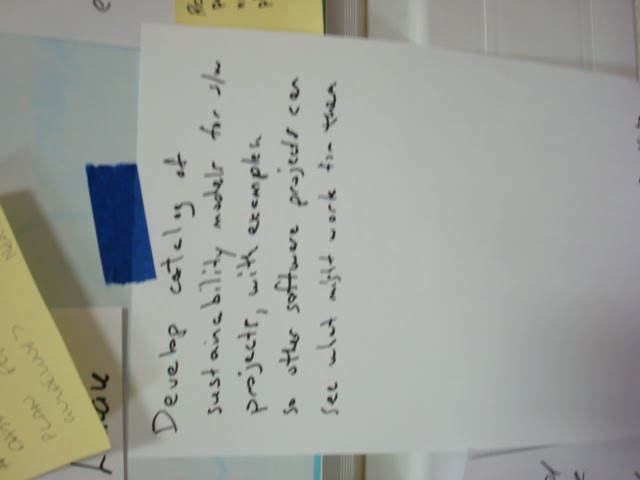 PLAN FOR
GUIDELINES
Develop catalog of
sustainability models for s/w
projects, with examples
so other software projects can
see what might work for them